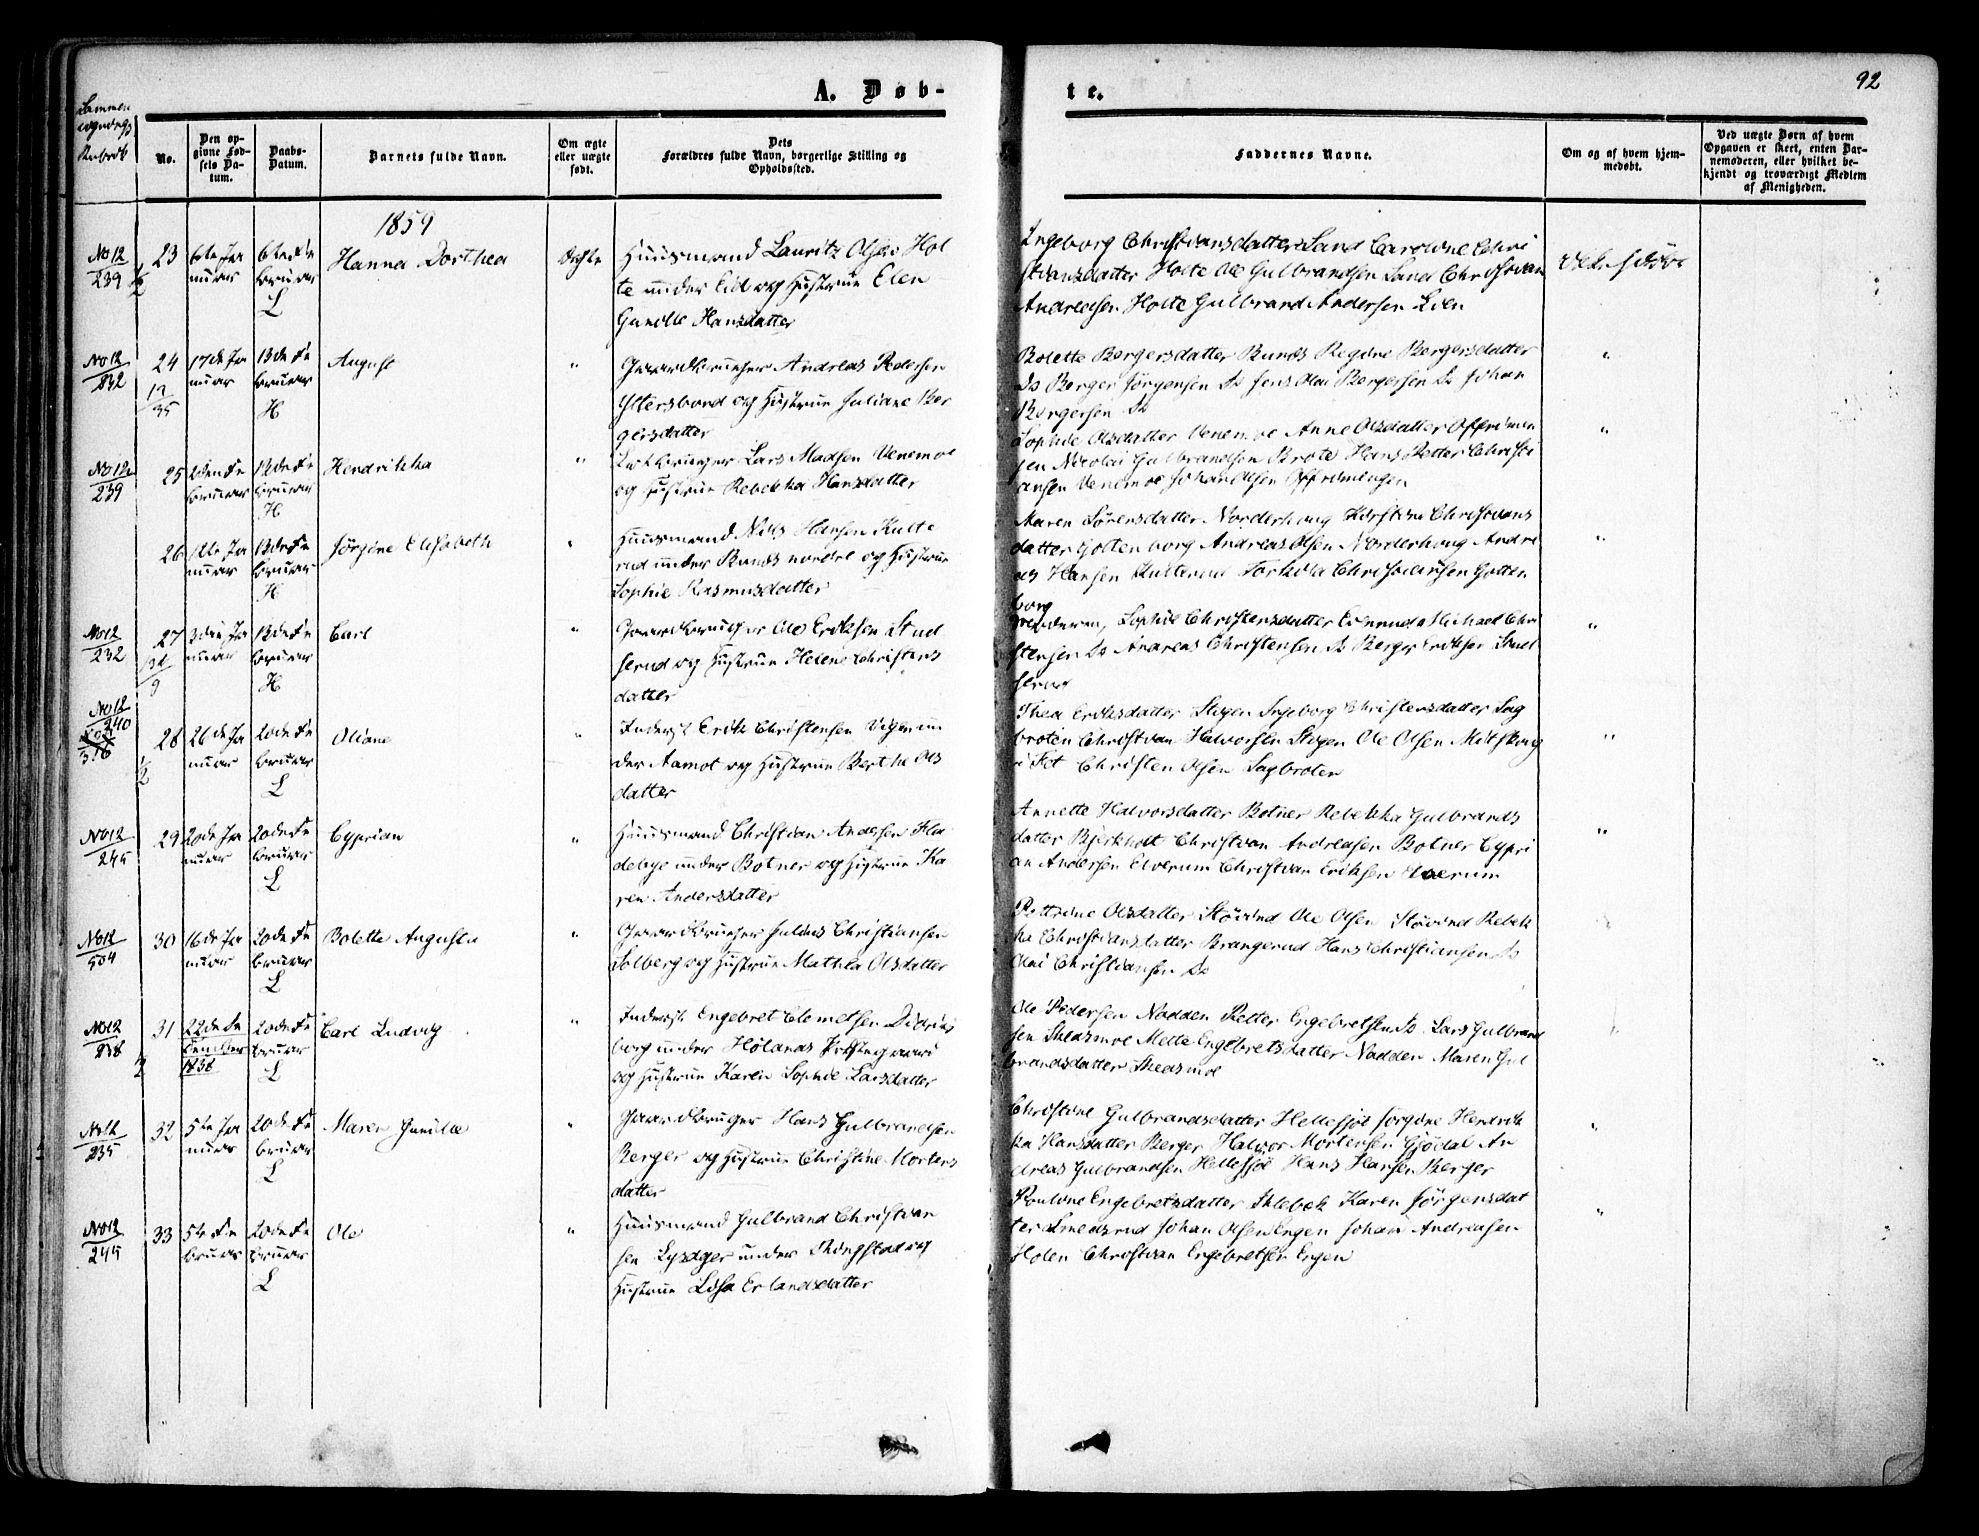 A. Døb-
te.
92
Sammen
No.
Den op-
givne Fød-
sels Da-
tum.
Daabs-
Datum.
Barnets fulde Navn.
Om ægte
eller uægte
født.
Dets
Forældres fulde Navn, borgerlige Stilling og
Opholdssted.
Faddernes Navne.
Om og af hvem hjem-
medøbt.
Ved uægte Børn af hvem
Opgaven er skeet, enten Bar-
nemoderen, eller hvilket be-
kjendt og troværdigt Medlem
af Menigheden.
1859
No 12
239
23
6te Ja
nuar
6te Fe
bruar
L
Hanna Dorthea
Ægte
Huusmand Lauritz Olsen Hol
te under Eid og Hustrue Elen
Gunille Hansdatter
Ingeborg Christiansdatter Sand Caroline Chri
stiansdatter Holte Ole Gulbrandsen Sand Christian
Andreasen Holte Gulbrand Andersen Lien
No 12
232
24
17de Ja
nuar
13de Fe
bruar
H
August
"
Gaardbruger Andreas Pedersen
Ytersbond og Hustrue Juliane Ber
gersdatter
Bolette Bergersdatter Bunes Regine Bergersdatter
Ds Berger Jørgensen Ds Jens Olai Bergersen Ds Johan
Bergersen Ds
No 12
239
25
2den Fe
bruar
13de Fe
bruar
H
Hendrikka
"
Lars Madsen Venemoe
og Hustrue Rebekka Hansdatter
Sophie Olsdatter Venemoe Anne Olsdatter Offrimin
gen Nicolai Gulbrandsen Brote Hans Petter Christi
ansen Venemoe Johan Olsen Offrimingen
26
12te Ja
nuar
13de Fe
bruar
H
Jørgine Elisabeth
"
Huusmand Nils Hansen Kulte
rud under Bunes nordre og Hustrue
Sophie Rasmusdatter
Maren Sørensdatter Norderhoug Kirstine Christians
datter Gottenborg Andreas Olsen Norderhoug Andre
as Hansen Kulterud Torkild Christiansen Gotten
borg
No 12
232
27
3die Ja
nuar
13de Fe
bruar
H
Carl
"
Gaardbruger Ole Eriksen Stud
serud og Hustrue Helene Christens
datter
Moderen, Sophie Christensdatter Evenrud Michael Chri
stensen Ds Andreas Christensen Ds Berger Eriksen Stud
serud
No 12
240
28
26de Ja
nuar
20de Fe
bruar
L
Oliane
"
Inderst Erik Christensen Vigen un
der Aamot og Hustrue Berthe Ols
datter
Thea Eriksdatter Stigen Ingeborg Christensdatter Sag
broten Christian Halvorsen Stigen Ole Olsen Mitskoug
i Fet Christen Olsen Sagbroten
No 12
245
29
20de Ja
nuar
20de Fe
bruar
L
Cyprian
"
Huusmand Christian Andersen Fla
debye under Botner og Hustrue Ka
ren Andersdatter
Annette Halvorsdatter Botner Rebekka Gulbrands
datter Bjerkholt Christian Andreasen Botner Cypri
an Andersen Elverum Christian Eriksen Elverum
No 12
504
30
16de Ja
nuar
20de Fe
bruar
L
Bolette Augusta
"
Gaardbruger Julius Christiansen
Solberg og Hustrue Mathea Olsdatter
Pettrine Olsdatter Støvind Ole Olsen Støvind Rebek
ka Christiansdatter Brangerud Hans Christiansen Ds
Olai Christiansen Ds
No 12
238
31
22de De
cember
1858
20de Fe
bruar
L
Carl Ludvig
"
Inderst Engebret Clemetsen Didriks
borg under Hølands Prestegaard
og Hustrue Karen Sophie Larsdatter
Ole Pedersen Nadden Petter Engebretsen Ds Lars Gulbrand
sen Skeasmoe Mette Engebretsdatter Nadden Maren Gul
brandsdatter Skeasmoe
No 12
235
32
5te Ja
nuar
20de Fe
bruar
L
Maren Gunilde
"
Gaardbruger Hans Gulbrandsen
Berger og Hustrue Christine Mortens
datter
Christine Gulbrandsdatter Hellesjøe Jørgine Hendrik
ka Hansdatter Berger Halvor Mortensen Gjødal An
dreas Gulbrandsen Hellesjøe Hans Hansen Berger
No 12
245
33
5te Fe
bruar
20de Fe
bruar
L
Ole
"
Huusmand Gulbrand Christian
sen Lysager under Ringstad og
Hustrue Lisa Erlandsdatter
Pouline Engebretsdatter Sklebek Karen Jørgensdat
ter Smedsrud Johan Olsen Engen Johan Andreasen
Holen Christian Engebretsen Engen